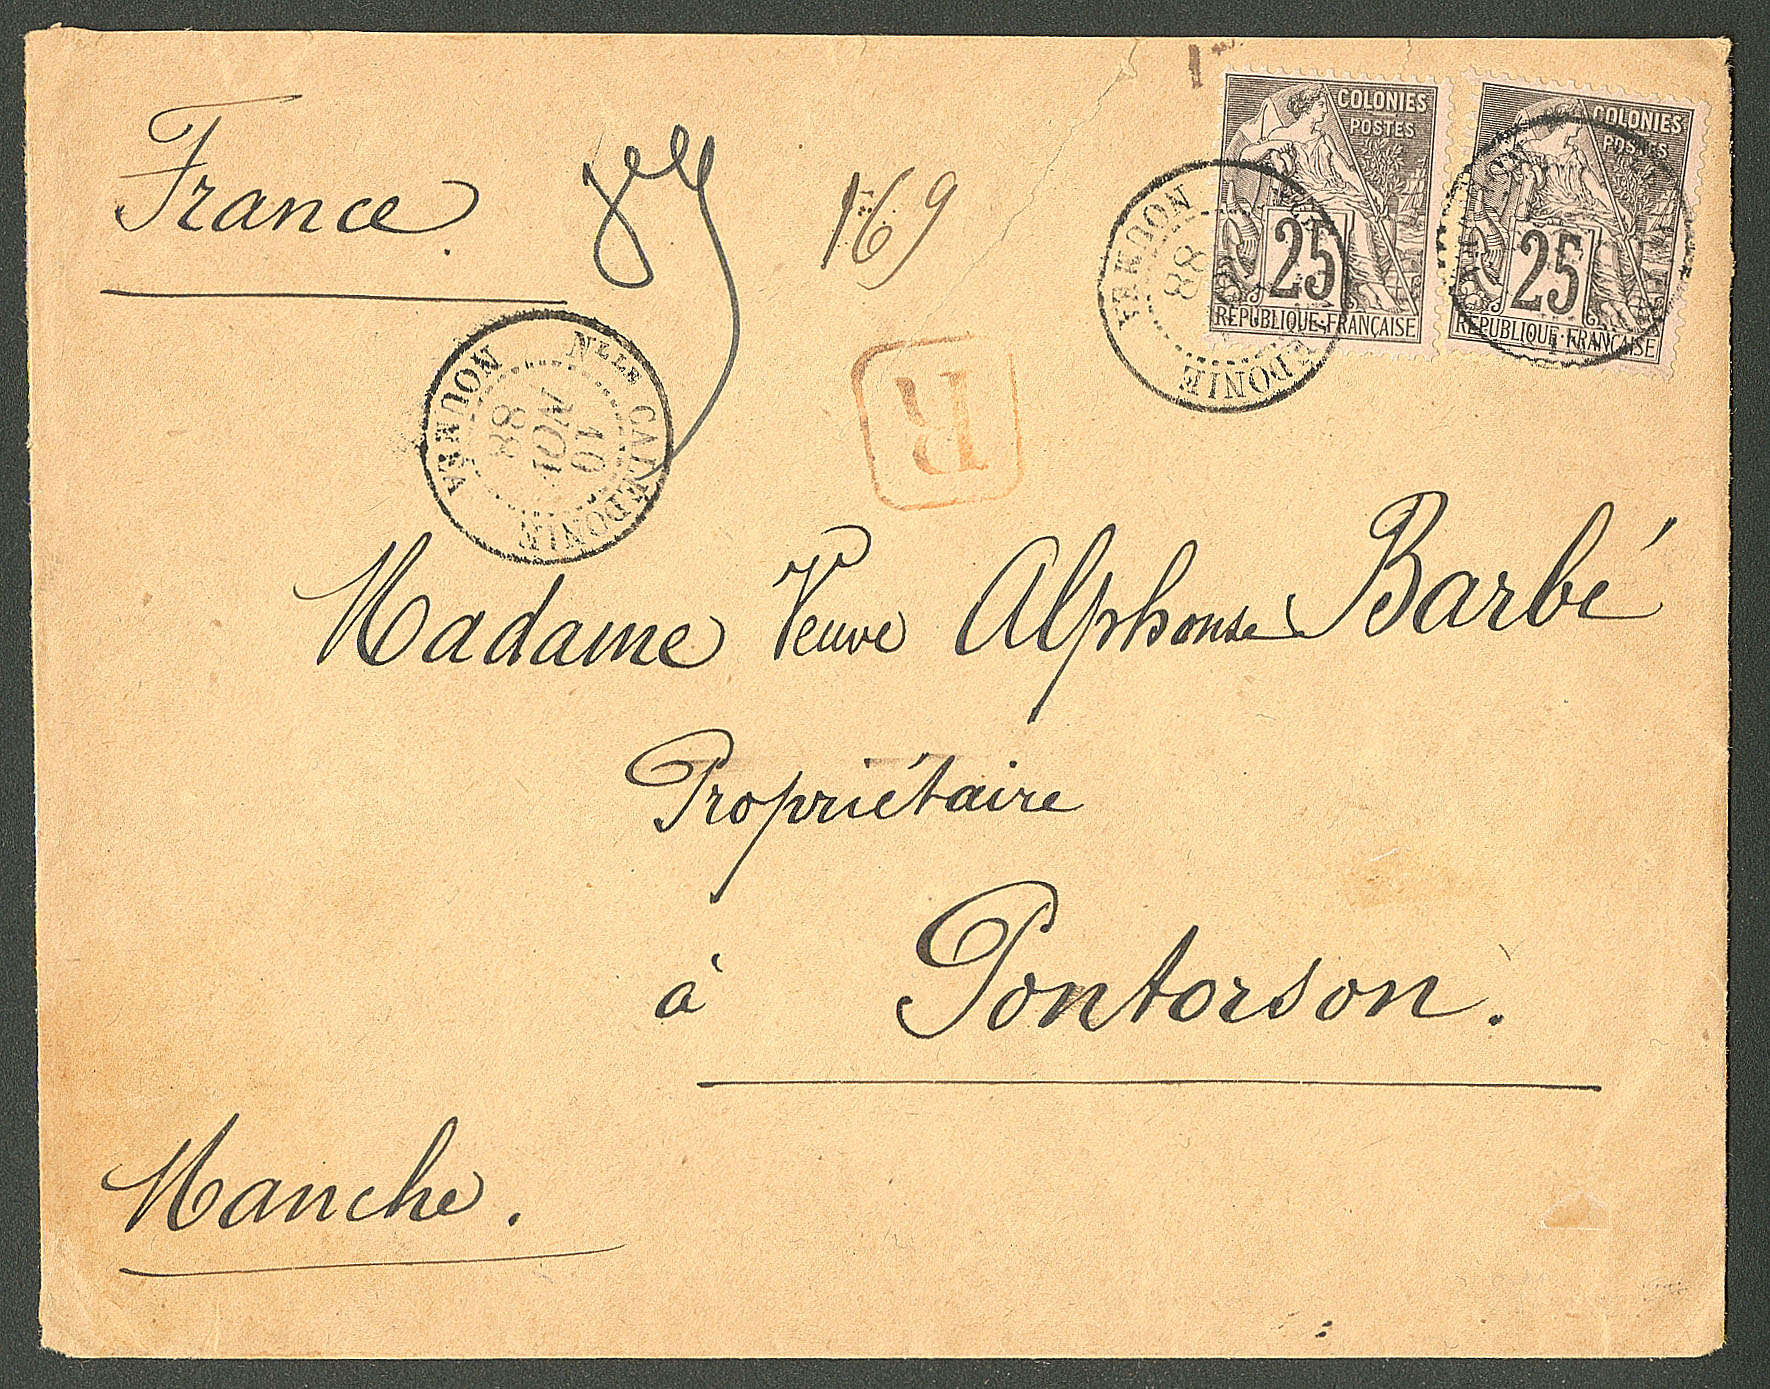 France.
169
COLONIES
POSTES
25
RÉPUBLIQUE FRANÇAISE
COLONIES
POSTES
25
RÉPUBLIQUE FRANÇAISE
NOUMEA
88
EDONIE
R
NLLE CALEDONIE
10
NOV
88
NOUMEA
Madame Veuve Alphonse Barbé
Propriétaire
à Pontorson.
Manche.